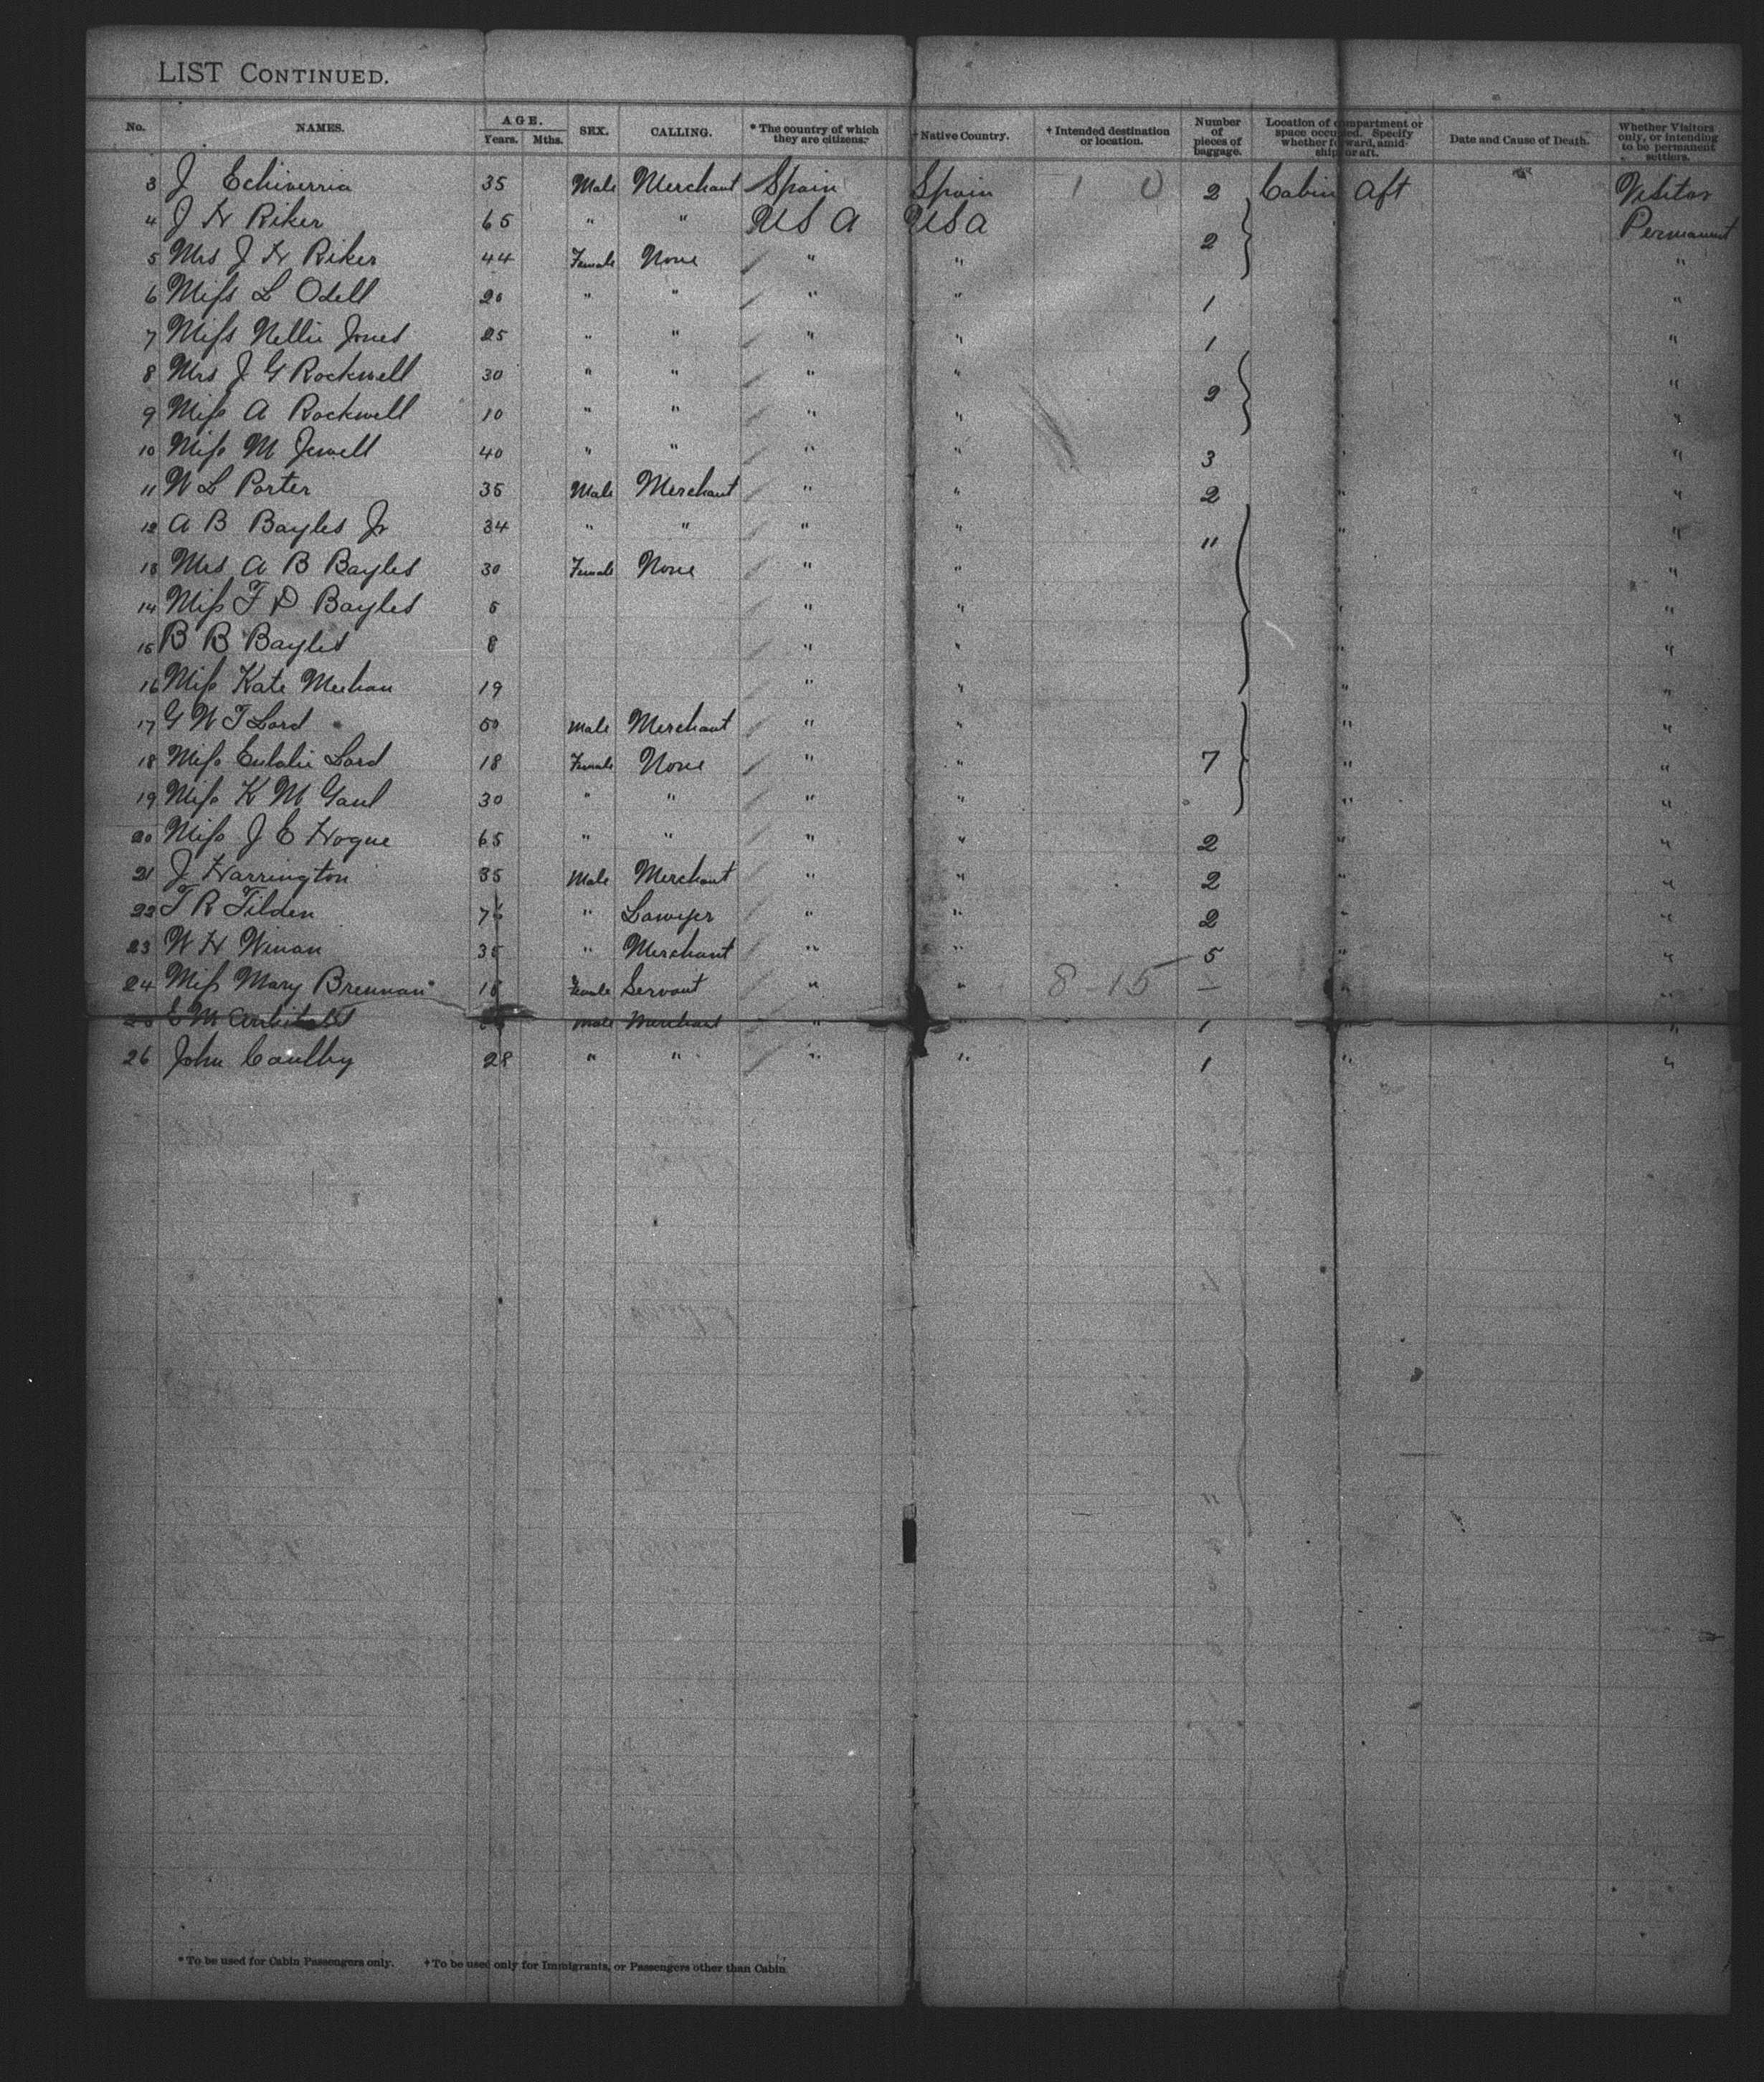 LIST CONTINUED.
No. NAMES. AGE. Years. Mths. SEX. CALLING. * The country of which they are citizens. † Native Country. † Intended destination or location. Number of pieces of baggage. Location of compartment or space occupied. Specify whether forward, amidship or aft. Date and Cause of Death. Whether Visitors only, or intending to be permanent settlers.
3 J Echiverria 35 Male Merchant Spain Spain 1 0 2 Cabin Aft Visitor
4 J H Riker 65 " " USA USA Permanent
5 Mrs J H Riker 44 Female None " " 2 "
6 Miss L Odell 20 " " " " 1 "
7 Miss Nellie Jones 25 " " " " 1 "
8 Mrs J G Rockwell 30 " " " " "
9 Miss A Rockwell 10 " " " " 2 " "
10 Miss M Jewell 40 " " " " 3 " "
11 W L Porter 35 Male Merchant " " 2 " "
12 A B Bayles Jr 34 " " " " 11 " "
13 Mrs A B Bayles 30 Female None " " " "
14 Miss F D Bayles 5 " " " "
15 B B Bayles 8 " " " "
16 Miss Kate Meehan 19 " " " "
17 G W T Lord 50 Male Merchant " " " "
18 Miss Eulalie Lord 18 Female None " " 7 " "
19 Miss K M Gaul 30 " " " " " "
20 Miss J E Hogue 65 " " " " 2 " "
21 J Harrington 35 Male Merchant " " 2 " "
22 T R Tilden 76 " Lawyer " " 2 " "
23 W H Winan 35 " Merchant " " 5 " "
24 Miss Mary Brennan 18 Female Servant " " 8 15 — " "
25 E M Male Merchant " " 1 "
26 John Caulby 28 " " " " 1 " "
* To be used for Cabin Passengers only. † To be used only for Immigrants, or Passengers other than Cabin